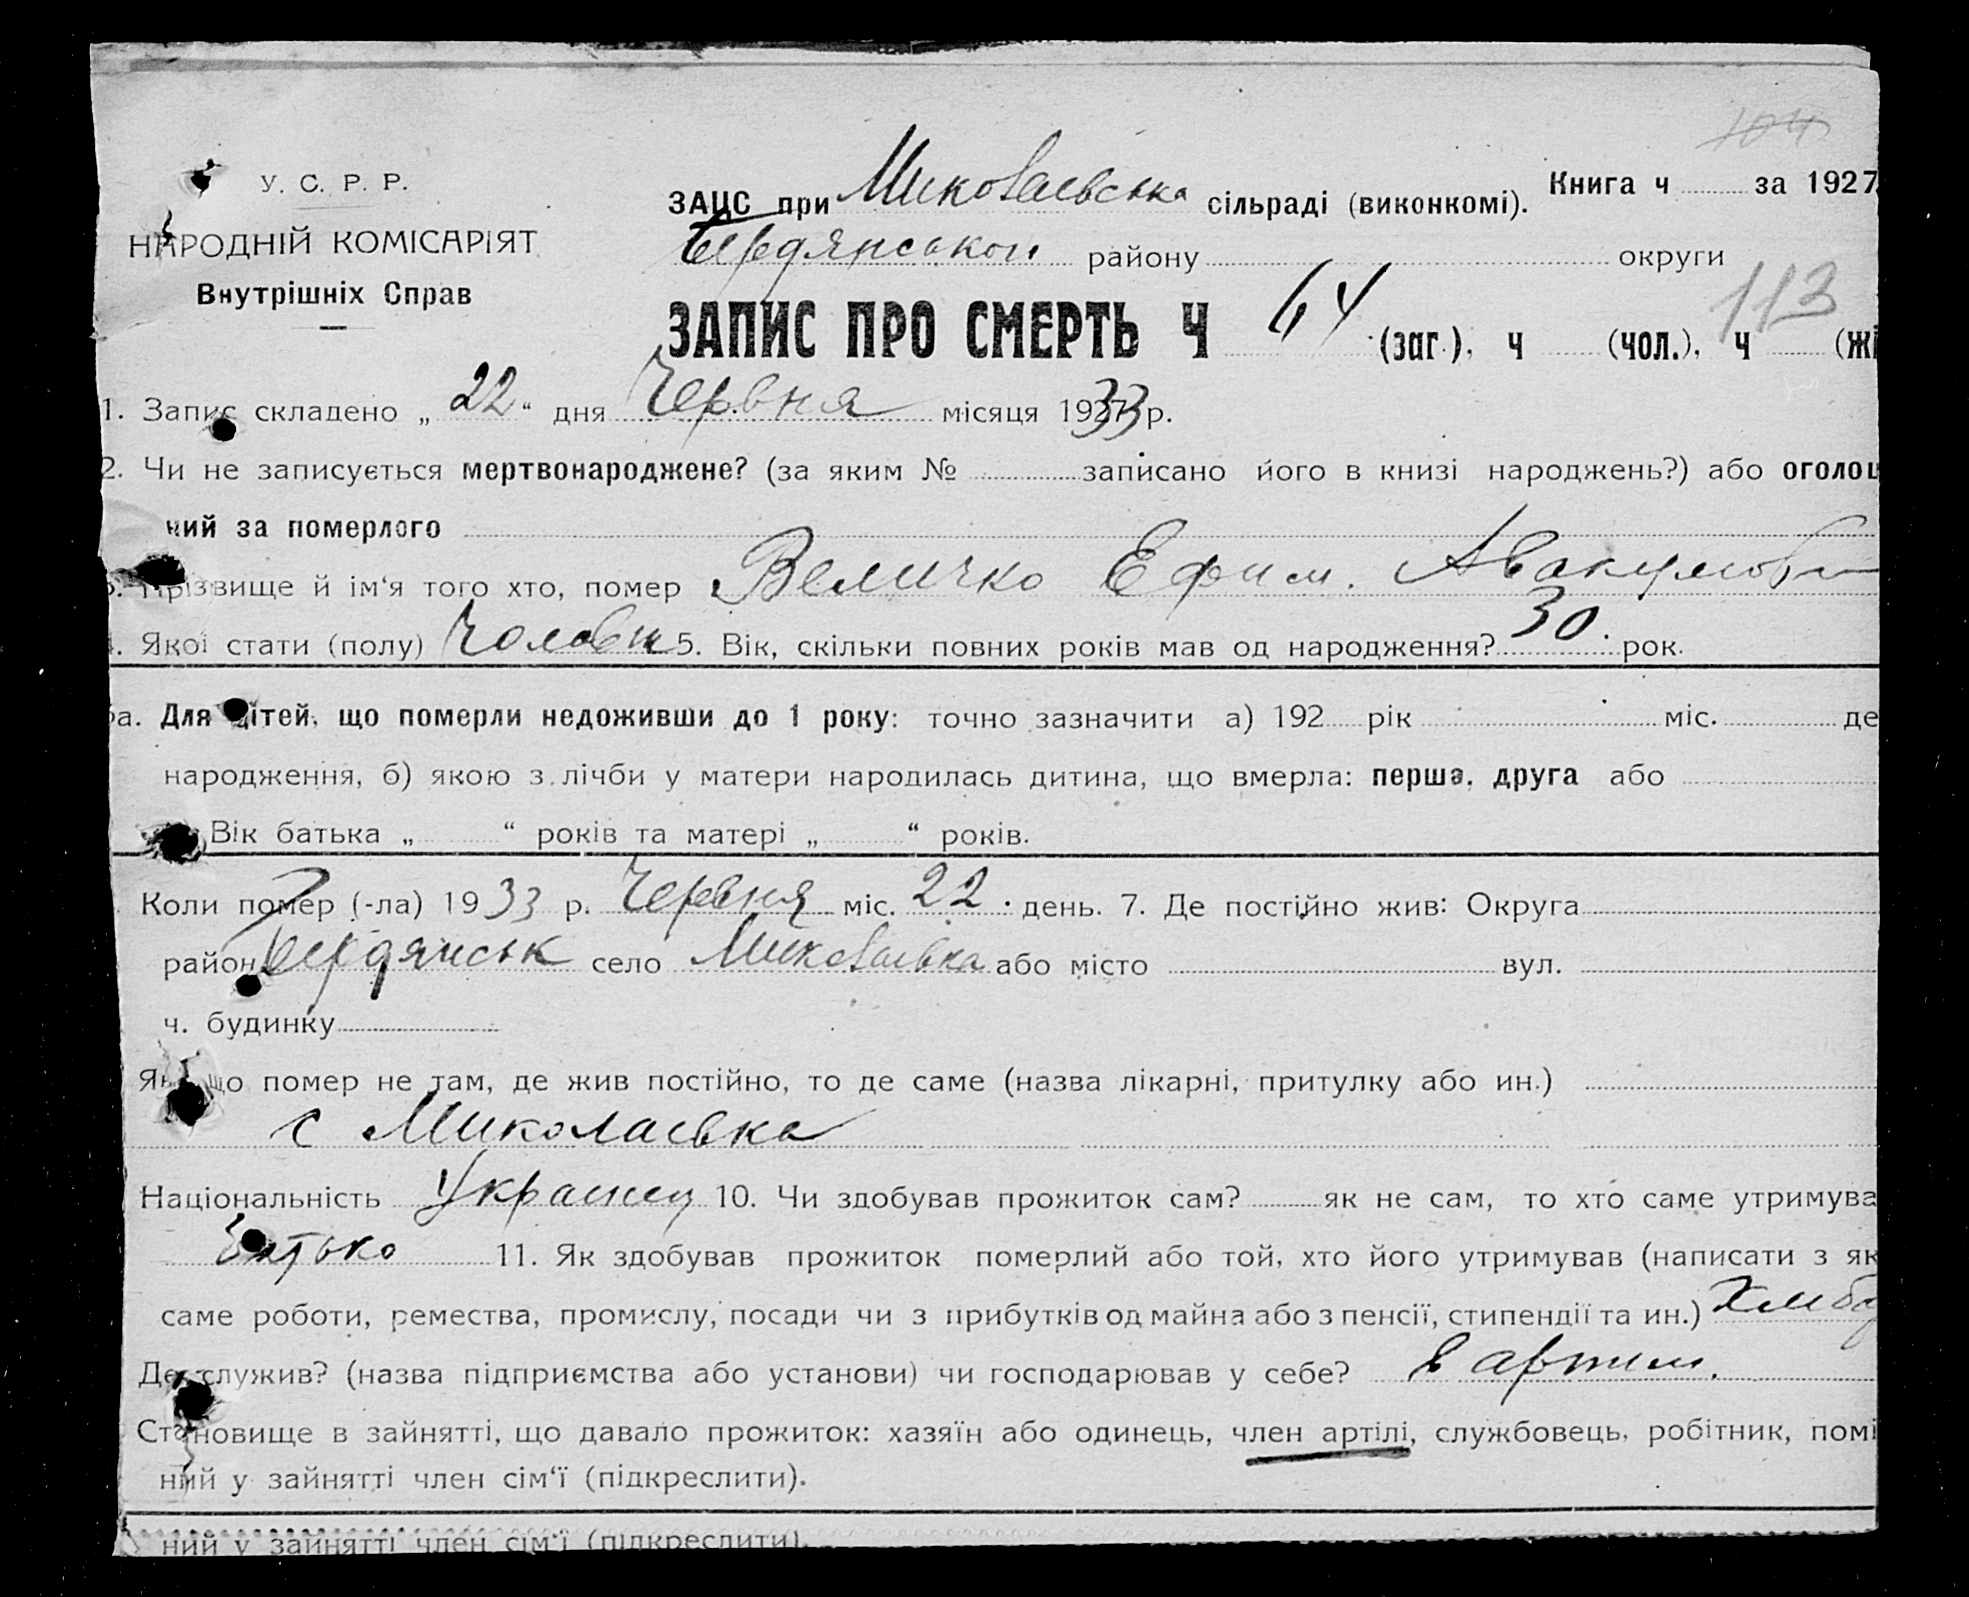 104
У. С. Р. Р.
НАРОДНІЙ КОМІСАРІЯТ
Внутрішніх Справ
ЗАЦС при Миколаевська сільраді (виконкомі). Книга ч за 1927
Бердянськои району округи
113
ЗАПИС ПРО СМЕРТЬ Ч 64 (заг.), ч (чол.), ч (жі
1. Запис складено „ 22 “ дня Червня місяця 1933 р.
2. Чи не записується мертвонароджене? (за яким № записано його в книзі народжень?) або оголош
ний за померлого
Прізвище й ім‘я того хто, помер Величко Ефим. Авакумов
Якої стати (полу) Чоловік 5. Вік, скільки повних років мав од народження? 30. рок.
5а. Для дітей, що померли недоживши до 1 року: точно зазначити а) 192 рік міс. де
народження, б) якою з лічби у матери народилась дитина, що вмерла: перша, друга або
Вік батька „ “ років та матері „ “ років.
Коли помер (-ла) 1933 р. Червня міс. 22 день. 7. Де постійно жив: Округа
район Бердянськ село Миколаевка або місто вул.
ч. будинку
Якщо помер не там, де жив постійно, то де саме (назва лікарні, притулку або ин.)
с Миколаевка
Національність Украинец 10. Чи здобував прожиток сам? як не сам, то хто саме утримува
Батько 11. Як здобував прожиток померлий або той, хто його утримував (написати з як
саме роботи, ремества, промислу, посади чи з прибутків од майна або з пенсії, стипендії та ин.)
Де служив? (назва підприємства або установи) чи господарював у себе? в артили.
Становище в зайнятті, що давало прожиток: хазяїн або одинець, член артілі, службовець, робітник, помі
ний у зайнятті член сім‘ї (підкреслити).
ний у зайнятті член сім‘ї (підкреслити).